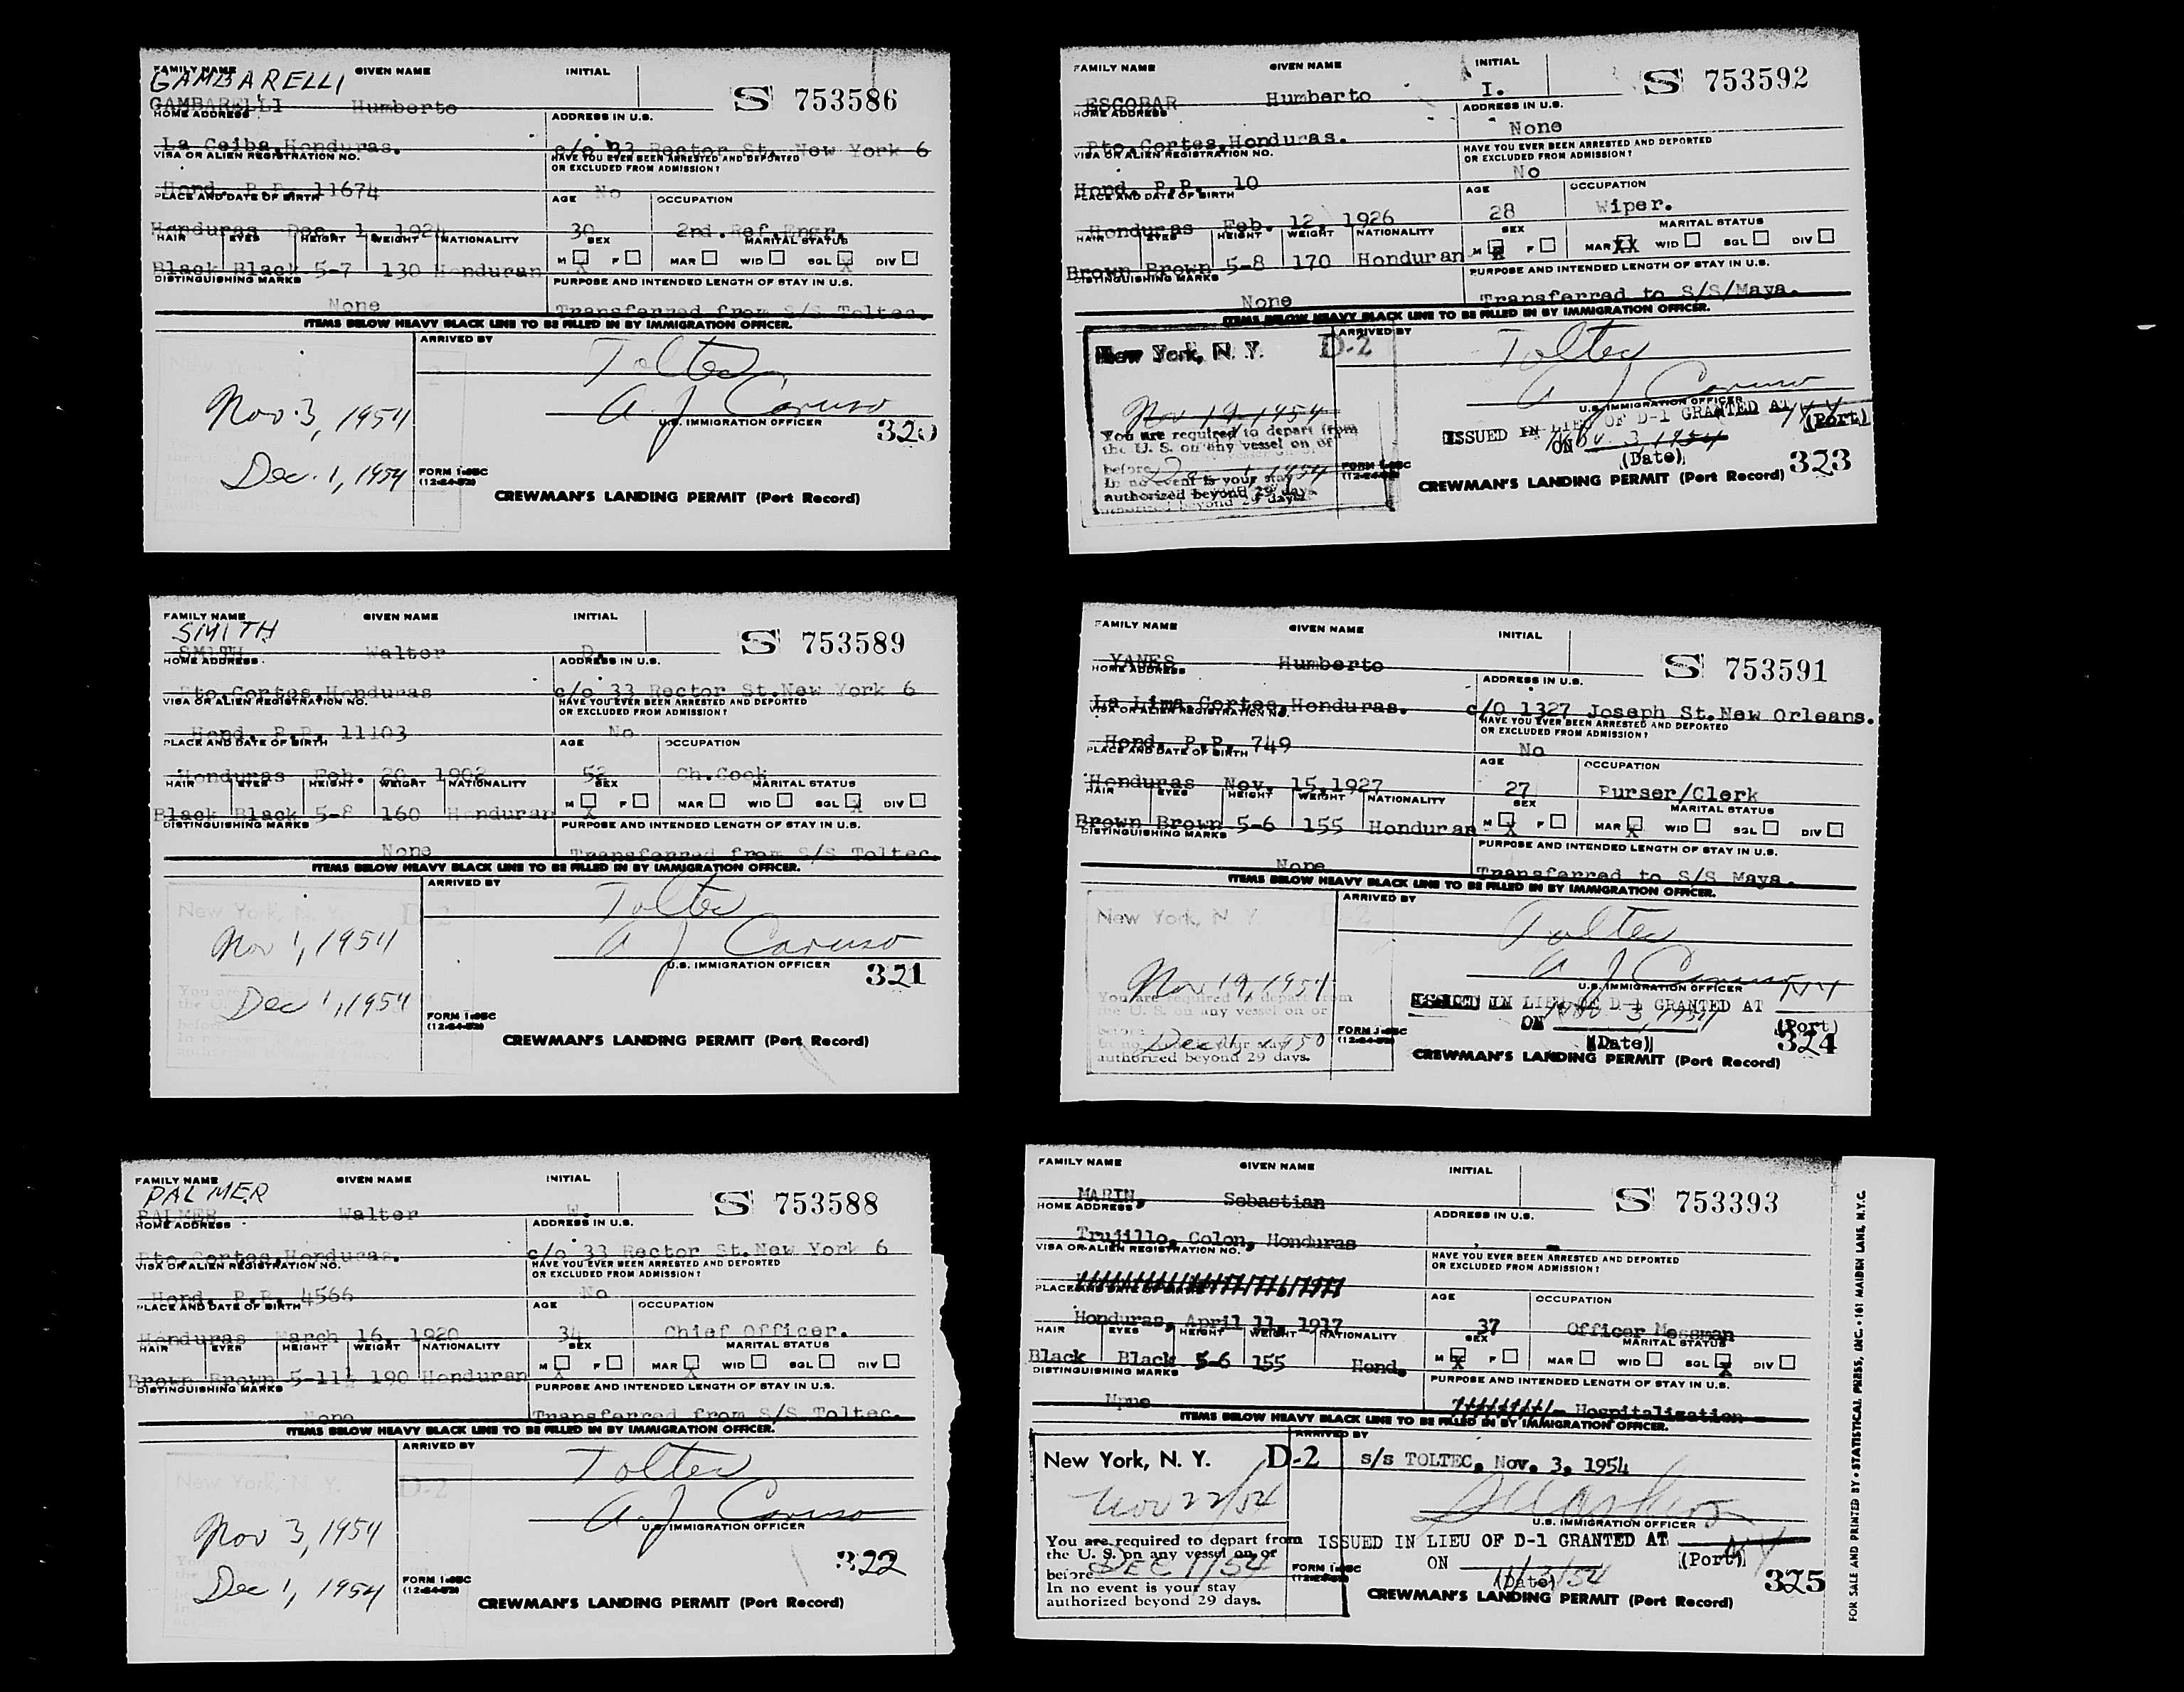 FAMILY NAME GIVEN NAME INITIAL
GAMBARELLI
S 753586
GAMBARELLI Humberto
HOME ADDRESS ADDRESS IN U.S.
La Ceiba, Honduras. c/o 33 Rector St. New York 6
VISA OR ALIEN REGISTRATION NO. HAVE YOU EVER BEEN ARRESTED AND DEPORTED
OR EXCLUDED FROM ADMISSION?
Hond. P.P. 11674 No
PLACE AND DATE OF BIRTH AGE OCCUPATION
Honduras Dec. 1, 1924 30 2nd.Ref.Engr.
HAIR EYES HEIGHT WEIGHT NATIONALITY SEX MARITAL STATUS
M X F MAR WID SGL X DIV
Black Black 5-7 130 Honduran
DISTINGUISHING MARKS PURPOSE AND INTENDED LENGTH OF STAY IN U.S.
None Transferred from S/S Toltec.
ITEMS BELOW HEAVY BLACK LINE TO BE FILLED IN BY IMMIGRATION OFFICER.
ARRIVED BY
New York, N. Y. D-2
Toltec
Nov. 3, 1954
A. J. Caruso
U.S. IMMIGRATION OFFICER
320
Dec. 1, 1954
FORM I-95C
(12-24-52)
CREWMAN'S LANDING PERMIT (Port Record)
FAMILY NAME GIVEN NAME INITIAL
S 753592
ESCOBAR Humberto I.
HOME ADDRESS ADDRESS IN U.S.
Pto.Cortes,Honduras. None
VISA OR ALIEN REGISTRATION NO. HAVE YOU EVER BEEN ARRESTED AND DEPORTED
OR EXCLUDED FROM ADMISSION?
Hond. P.P. 10 No
PLACE AND DATE OF BIRTH AGE OCCUPATION
Honduras Feb. 12, 1926 28 Wiper.
HAIR EYES HEIGHT WEIGHT NATIONALITY SEX MARITAL STATUS
M X F MAR XX WID SGL DIV
Brown Brown 5-8 170 Honduran
DISTINGUISHING MARKS PURPOSE AND INTENDED LENGTH OF STAY IN U.S.
None Transferred to S/S/Maya.
ITEMS BELOW HEAVY BLACK LINE TO BE FILLED IN BY IMMIGRATION OFFICER.
ARRIVED BY
New York, N. Y. D-2
Toltec
A J Caruso
Nov 19, 1954
U.S. IMMIGRATION OFFICER
You are required to depart from
the U. S. on any vessel on or
before Dec 1, 1954
In no event is your stay
authorized beyond 29 days.
ISSUED IN LIEU OF D-1 GRANTED AT NY
(Port)
ON Nov. 3, 1954
(Date)
323
FORM I-95C
(12-24-52)
CREWMAN'S LANDING PERMIT (Port Record)
FAMILY NAME GIVEN NAME INITIAL
SMITH
S 753589
SMITH Walter D.
HOME ADDRESS ADDRESS IN U.S.
Pto.Cortes,Honduras c/o 33 Rector St.New York 6
VISA OR ALIEN REGISTRATION NO. HAVE YOU EVER BEEN ARRESTED AND DEPORTED
OR EXCLUDED FROM ADMISSION?
Hond. P.P. 11103 No
PLACE AND DATE OF BIRTH AGE OCCUPATION
Honduras Feb. 1902 52 Ch.Cook
HAIR EYES HEIGHT WEIGHT NATIONALITY SEX MARITAL STATUS
M X F MAR WID SGL X DIV
Black Black 5-8 160 Honduran
DISTINGUISHING MARKS PURPOSE AND INTENDED LENGTH OF STAY IN U.S.
None Transferred from S/S Toltec.
ITEMS BELOW HEAVY BLACK LINE TO BE FILLED IN BY IMMIGRATION OFFICER.
ARRIVED BY
New York, N. Y. D-2
Toltec
Nov 1, 1954
A J Caruso
U.S. IMMIGRATION OFFICER
321
Dec 1, 1954
FORM I-95C
(12-24-52)
CREWMAN'S LANDING PERMIT (Port Record)
FAMILY NAME GIVEN NAME INITIAL
S 753591
YANES Humberto
HOME ADDRESS ADDRESS IN U.S.
La Lima Cortes, Honduras. c/O 1327 Joseph St.New Orleans.
VISA OR ALIEN REGISTRATION NO. HAVE YOU EVER BEEN ARRESTED AND DEPORTED
OR EXCLUDED FROM ADMISSION?
Hond. P.P. 749 No
PLACE AND DATE OF BIRTH AGE OCCUPATION
Honduras Nov. 15,1927 27 Purser/Clerk
HAIR EYES HEIGHT WEIGHT NATIONALITY SEX MARITAL STATUS
M X F MAR X WID SGL DIV
Brown Brown 5-6 155 Honduran
DISTINGUISHING MARKS PURPOSE AND INTENDED LENGTH OF STAY IN U.S.
None Transferred to S/S Maya.
ITEMS BELOW HEAVY BLACK LINE TO BE FILLED IN BY IMMIGRATION OFFICER.
ARRIVED BY
New York, N. Y. D-2
Toltec
A J Caruso
Nov 19, 1954
U.S. IMMIGRATION OFFICER
You are required to depart from
the U. S. on any vessel on or
before Dec 1, 1950
In no event is your stay
authorized beyond 29 days.
ISSUED IN LIEU OF D-1 GRANTED AT NY
(Port)
ON Nov 3, 1954
(Date)
324
FORM I-95C
(12-24-52)
CREWMAN'S LANDING PERMIT (Port Record)
FAMILY NAME GIVEN NAME INITIAL
PALMER
S 753588
PALMER Walter W.
HOME ADDRESS ADDRESS IN U.S.
Pto.Cortes,Honduras. c/o 33 Rector St.New York 6
VISA OR ALIEN REGISTRATION NO. HAVE YOU EVER BEEN ARRESTED AND DEPORTED
OR EXCLUDED FROM ADMISSION?
Hond. P.P. 4566 No
PLACE AND DATE OF BIRTH AGE OCCUPATION
Honduras March 16, 1920 34 Chief Officer.
HAIR EYES HEIGHT WEIGHT NATIONALITY SEX MARITAL STATUS
M X F MAR X WID SGL DIV
Brown Brown 5-11½ 190 Honduran
DISTINGUISHING MARKS PURPOSE AND INTENDED LENGTH OF STAY IN U.S.
None Transferred from S/S Toltec.
ITEMS BELOW HEAVY BLACK LINE TO BE FILLED IN BY IMMIGRATION OFFICER.
ARRIVED BY
New York, N. Y. D-2
Toltec
A. J. Caruso
Nov 3, 1954
U.S. IMMIGRATION OFFICER
322
Dec 1, 1954
FORM I-95C
(12-24-52)
CREWMAN'S LANDING PERMIT (Port Record)
FAMILY NAME GIVEN NAME INITIAL
S 753393
MARIN, Sebastian
HOME ADDRESS ADDRESS IN U.S.
Trujillo, Colon, Honduras
VISA OR ALIEN REGISTRATION NO. HAVE YOU EVER BEEN ARRESTED AND DEPORTED
OR EXCLUDED FROM ADMISSION?
PLACE AND DATE OF BIRTH AGE OCCUPATION
Honduras, April 11, 1917 37 Officer Messman
HAIR EYES HEIGHT WEIGHT NATIONALITY SEX MARITAL STATUS
M X F MAR WID SGL X DIV
Black Black 5-6 155 Hond.
DISTINGUISHING MARKS PURPOSE AND INTENDED LENGTH OF STAY IN U.S.
Npne Hospitalization -
ITEMS BELOW HEAVY BLACK LINE TO BE FILLED IN BY IMMIGRATION OFFICER.
ARRIVED BY
New York, N. Y. D-2 s/s TOLTEC, Nov. 3, 1954
Nov 22/54
U.S. IMMIGRATION OFFICER
You are required to depart from
the U. S. on any vessel on or
before DEC 1/54
In no event is your stay
authorized beyond 29 days.
ISSUED IN LIEU OF D-1 GRANTED AT NY
(Port)
ON 11/3/54
(Date)
325
FORM I-95C
(12-24-52)
CREWMAN'S LANDING PERMIT (Port Record)
FOR SALE AND PRINTED BY • STATISTICAL PRESS, INC. • 161 MAIDEN LANE, N.Y.C.